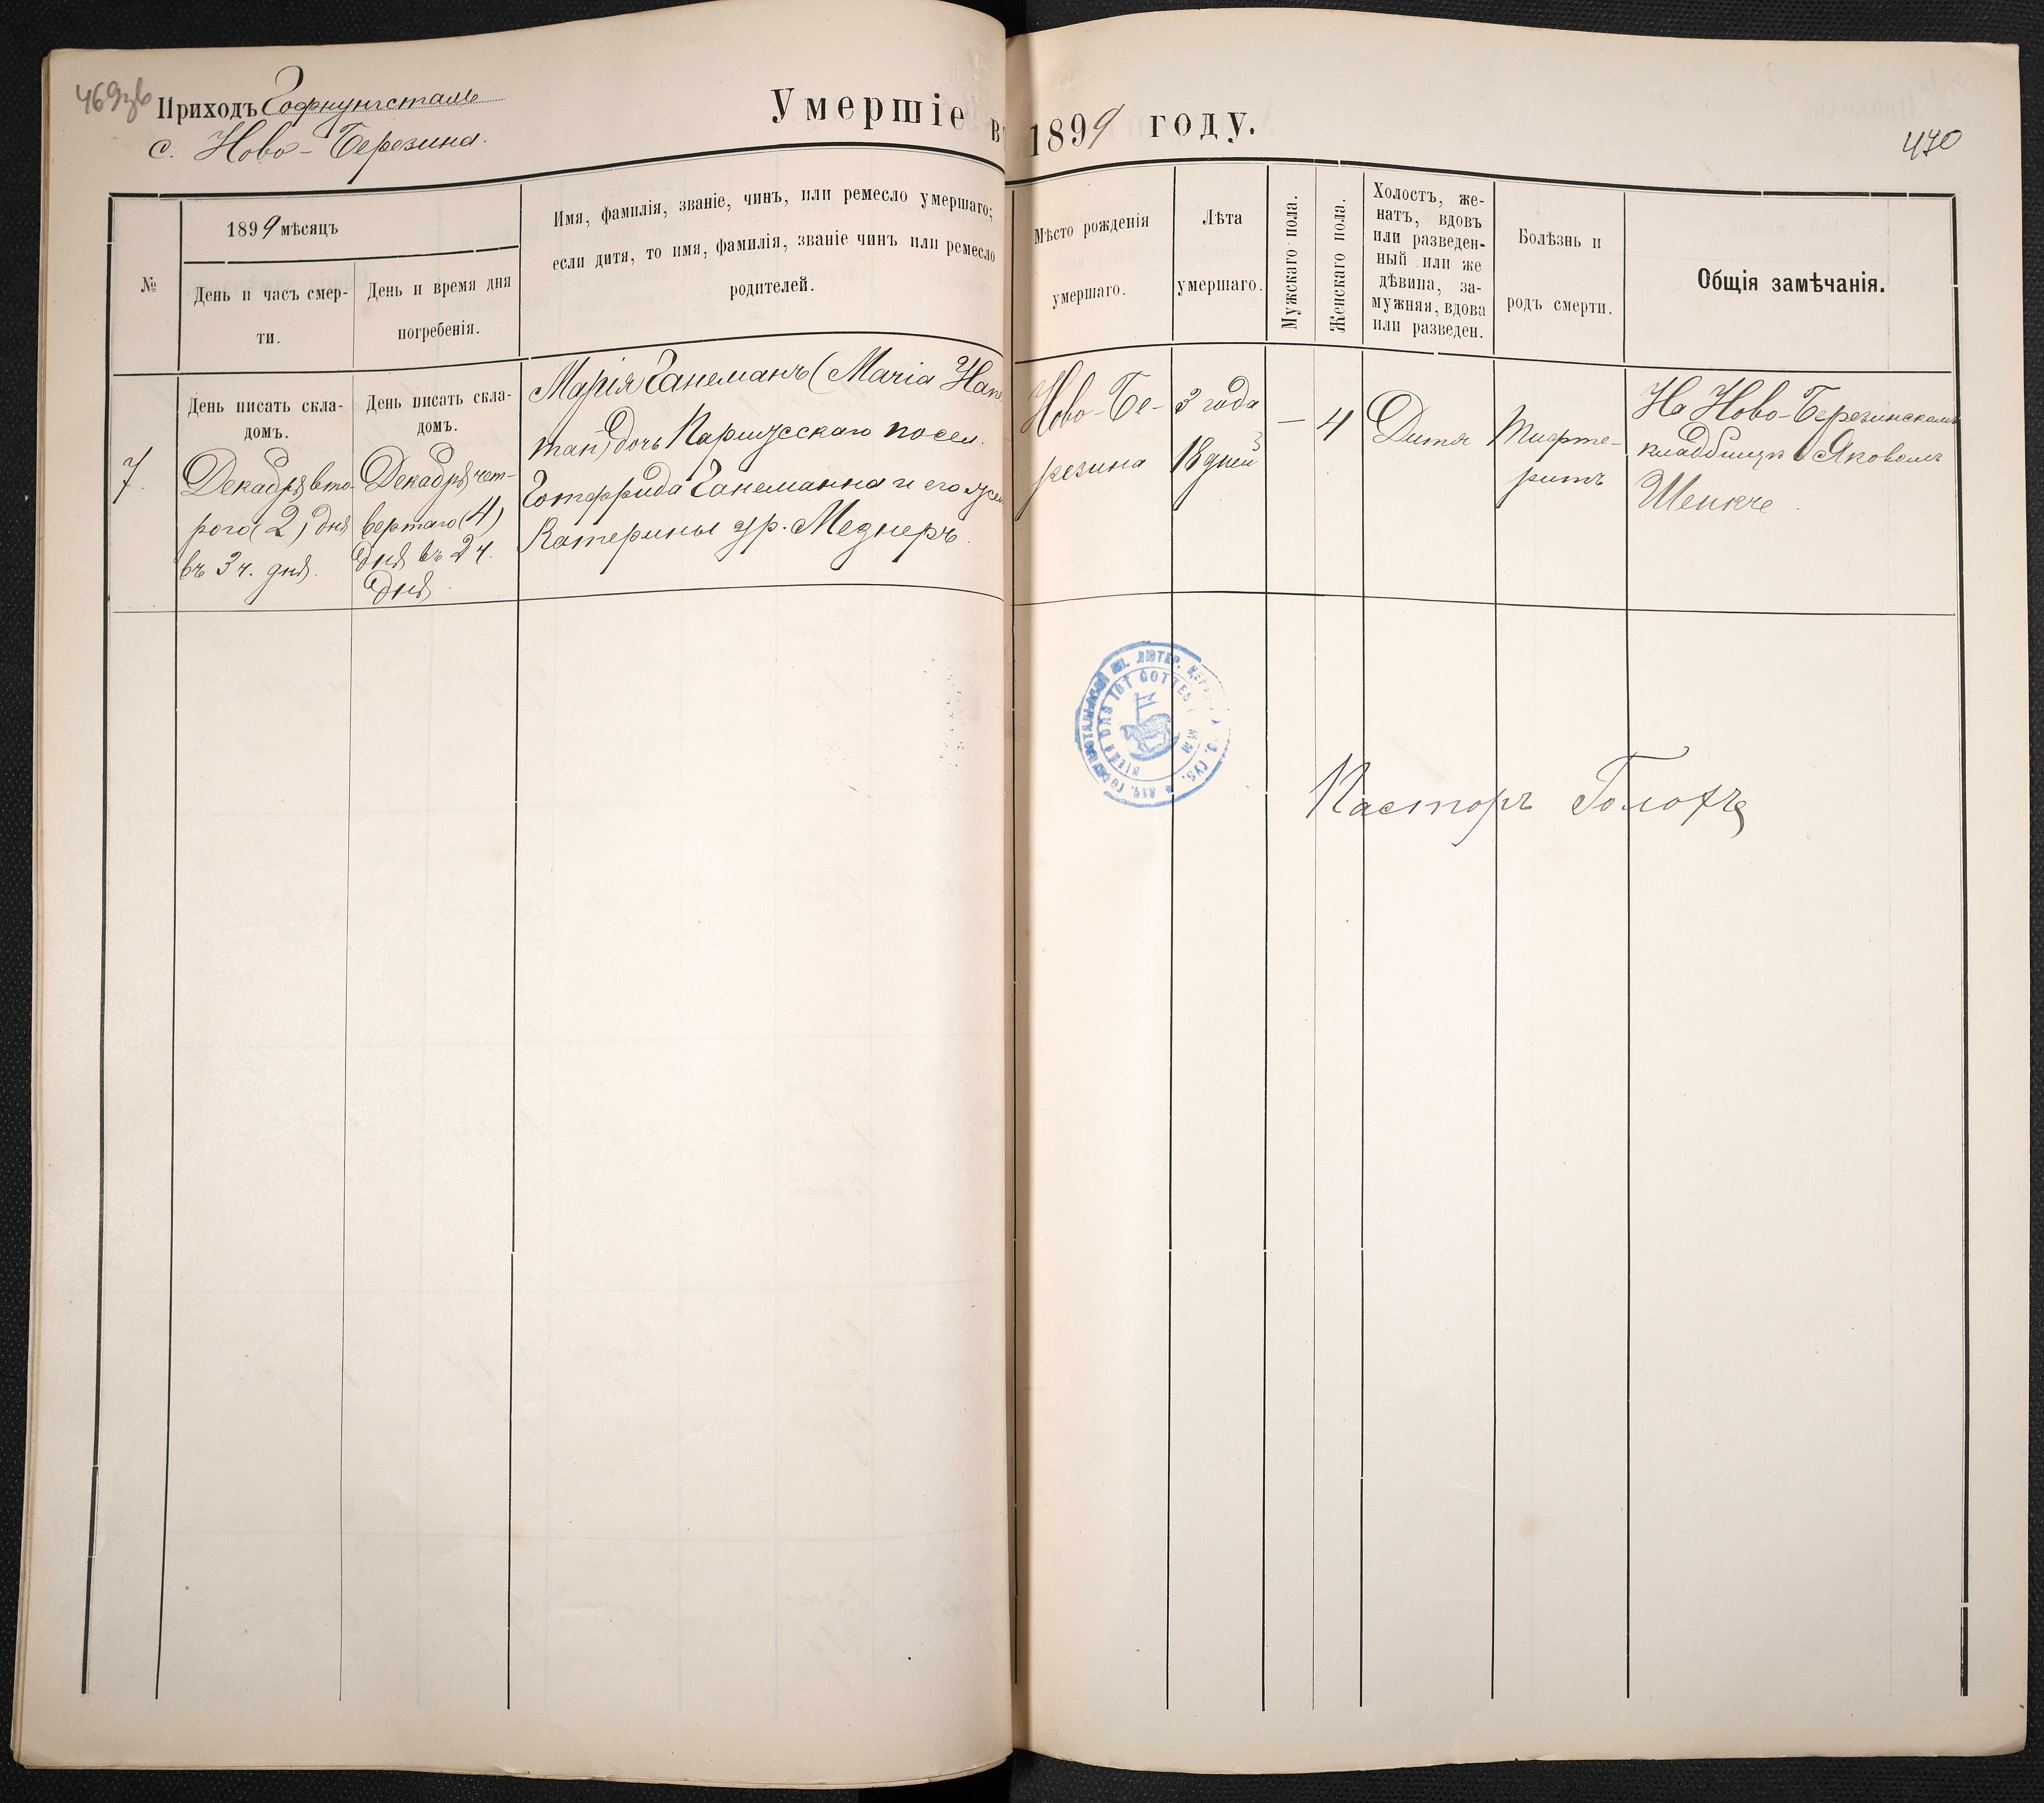 469зв
Приходъ Гофнунгсталь
с. Ново-Березина.
Умершіе въ 1899 году.
470
№
1899 мѣсяцъ
День и часъ смер-
ти.
День и время дня
погребенія.
Имя, фамилія, званіе, чинъ, или ремесло умершаго;
если дитя, то имя, фамилія, званіе чинъ или ремесло
родителей.
Мѣсто рожденія
умершаго.
Лѣта
умершаго.
Мужскаго пола.
Женскаго пола.
Холостъ, же-
натъ, вдовъ
или разведен-
ный или же
дѣвица, за-
мужняя, вдова
или разведен.
Болѣзнь и
родъ смерти.
Общія замѣчанія.
7.
День писать скла-
домъ.
Декабря вто-
рого (2) дня
въ 3 ч. дня.
День писать скла-
домъ.
Декабря чет-
вертаго (4)
дня въ 2 ч.
дня.
Марія Ганеманъ (Maria Hane
man) дочь Парижскаго посел.
Готфрида Ганеманна и его жен
Катерины ур. Меднеръ.
Ново-Бе-
резина
3 года
18 дней
—
4
Дитя
Дифте-
ритъ
На Ново-Березинскомъ
кладбищѣ Яковомъ
Шенкче.
ЛЮТЕР.
ГУБ.
SIEHE DAS IST GOTTES LAMM
Пасторъ